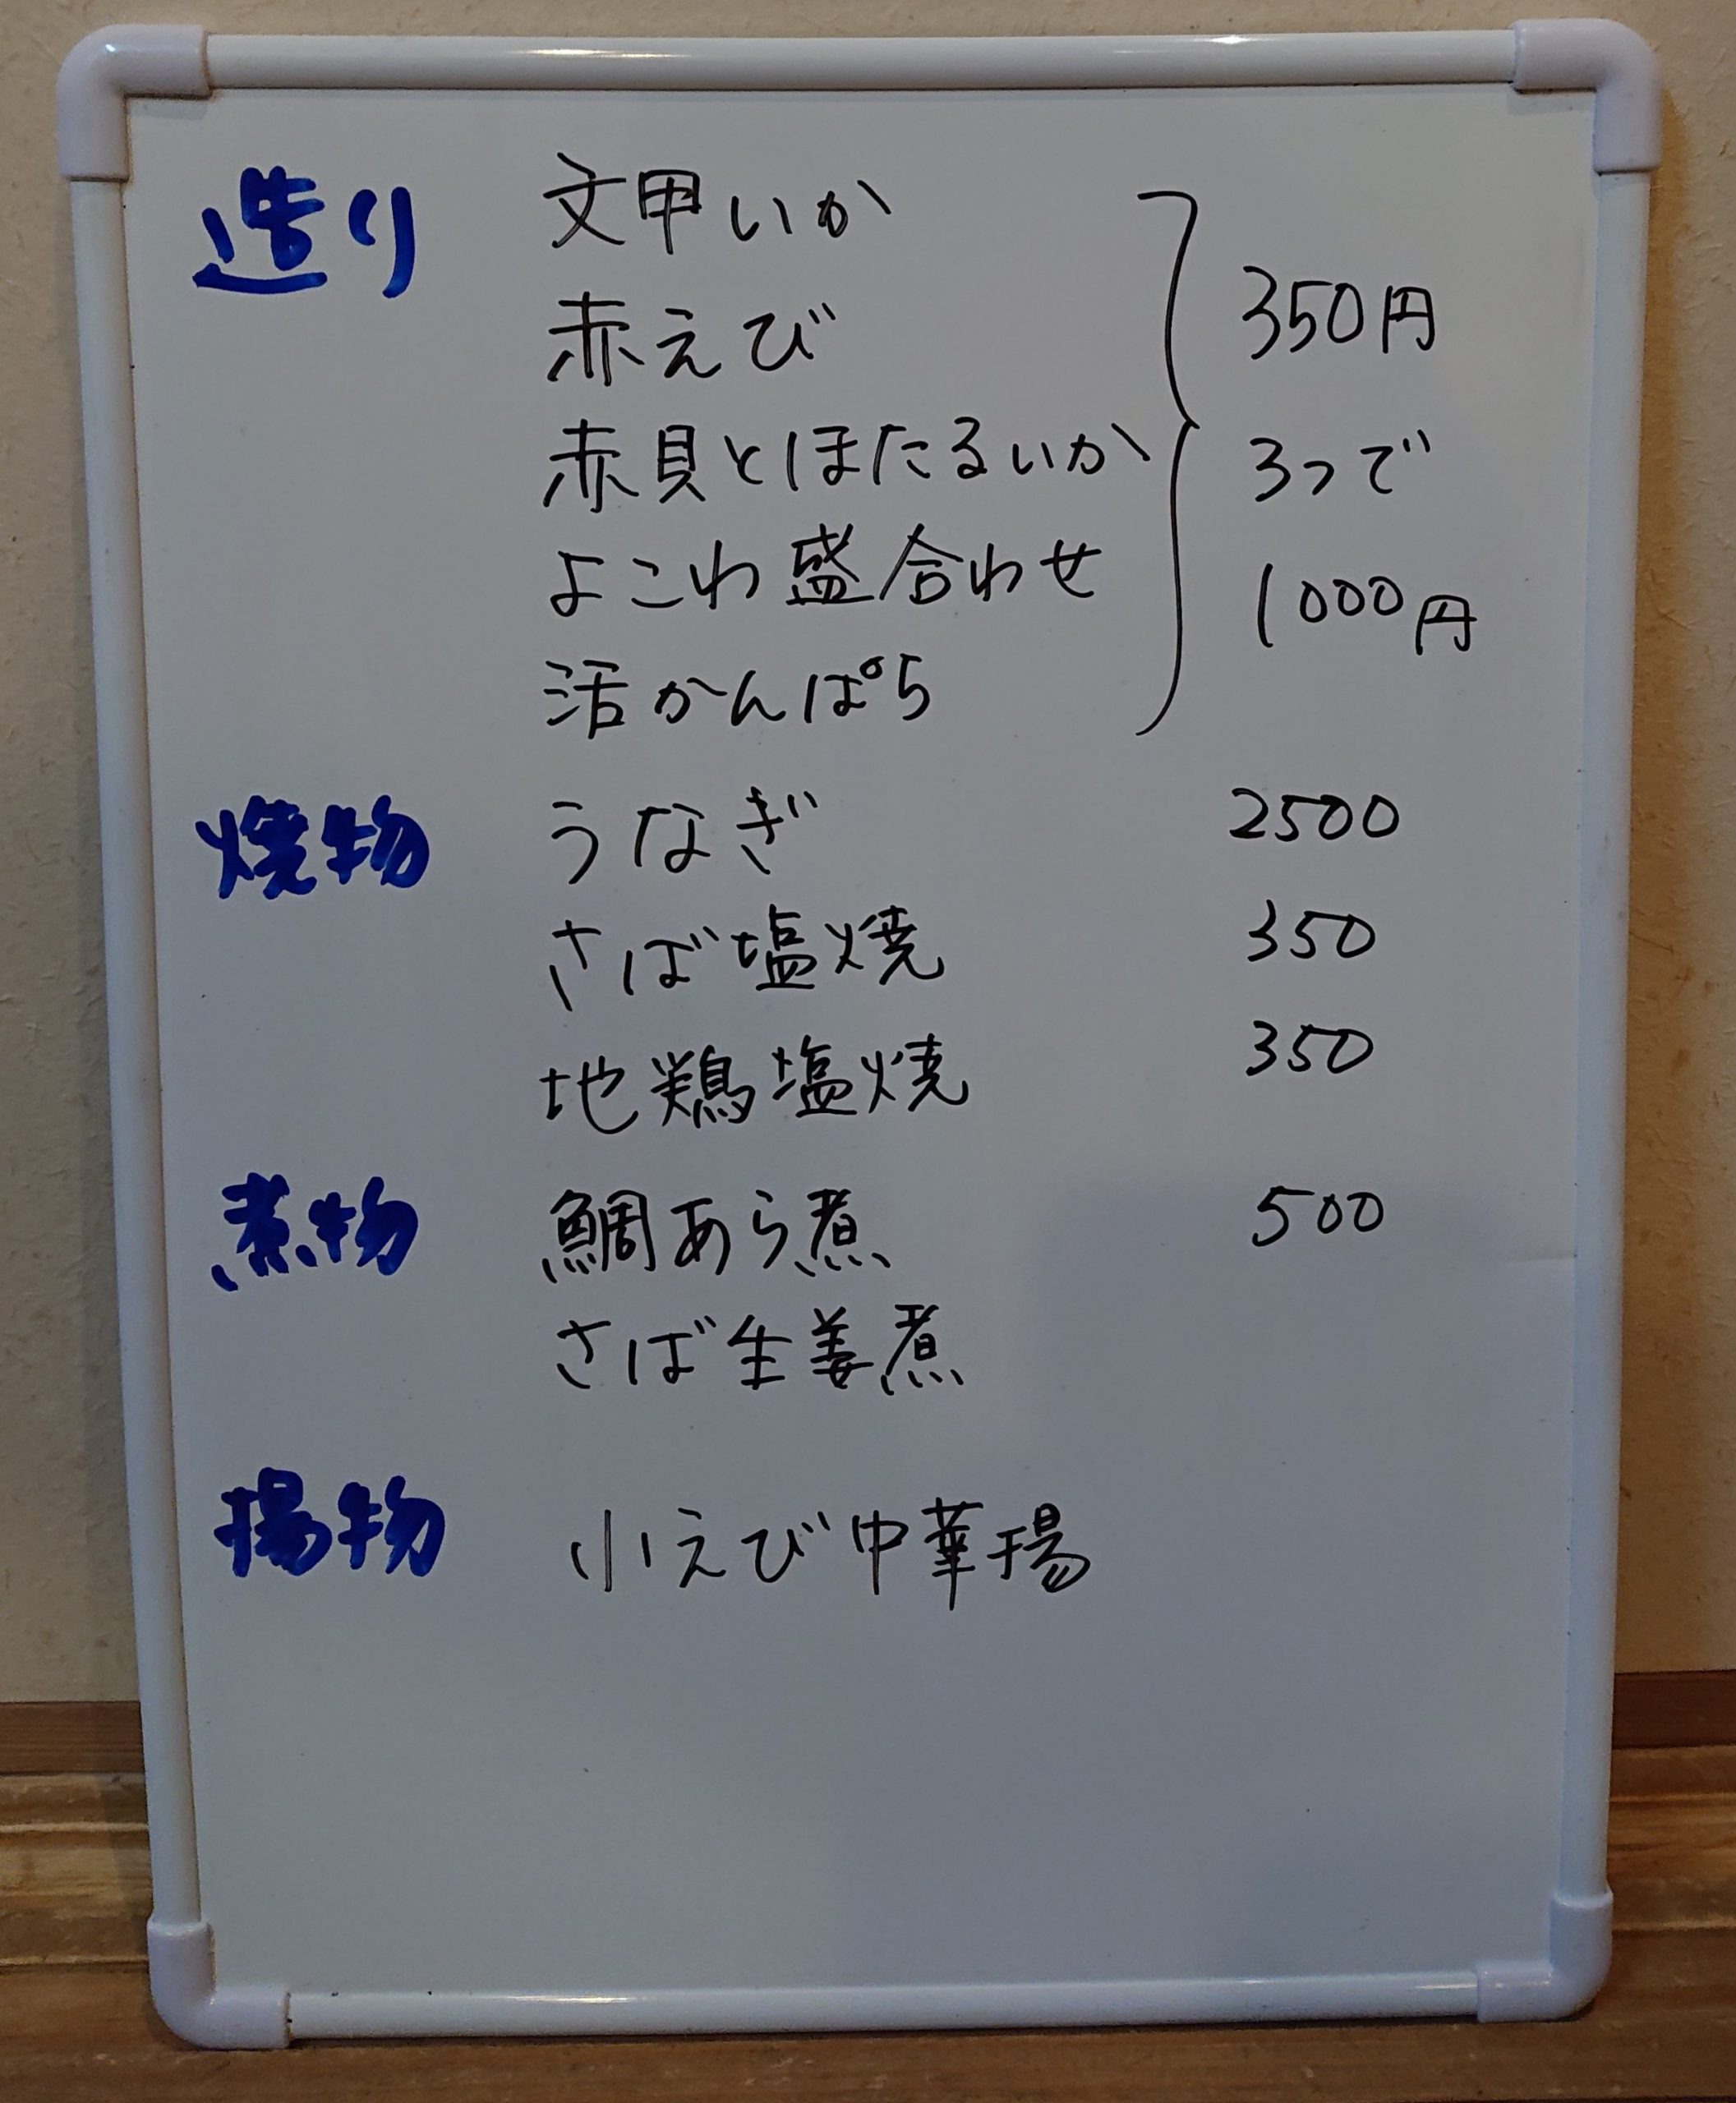 造り 文甲いか
赤えび 350円
赤貝とほたるいか 3つで
よこわ盛合わせ 1000円
活かんぱち
焼物 うなぎ 2500
さば塩焼 350
地鶏塩焼 350
煮物 鯛あら煮 500
さば生姜煮
揚物 小えび中華揚